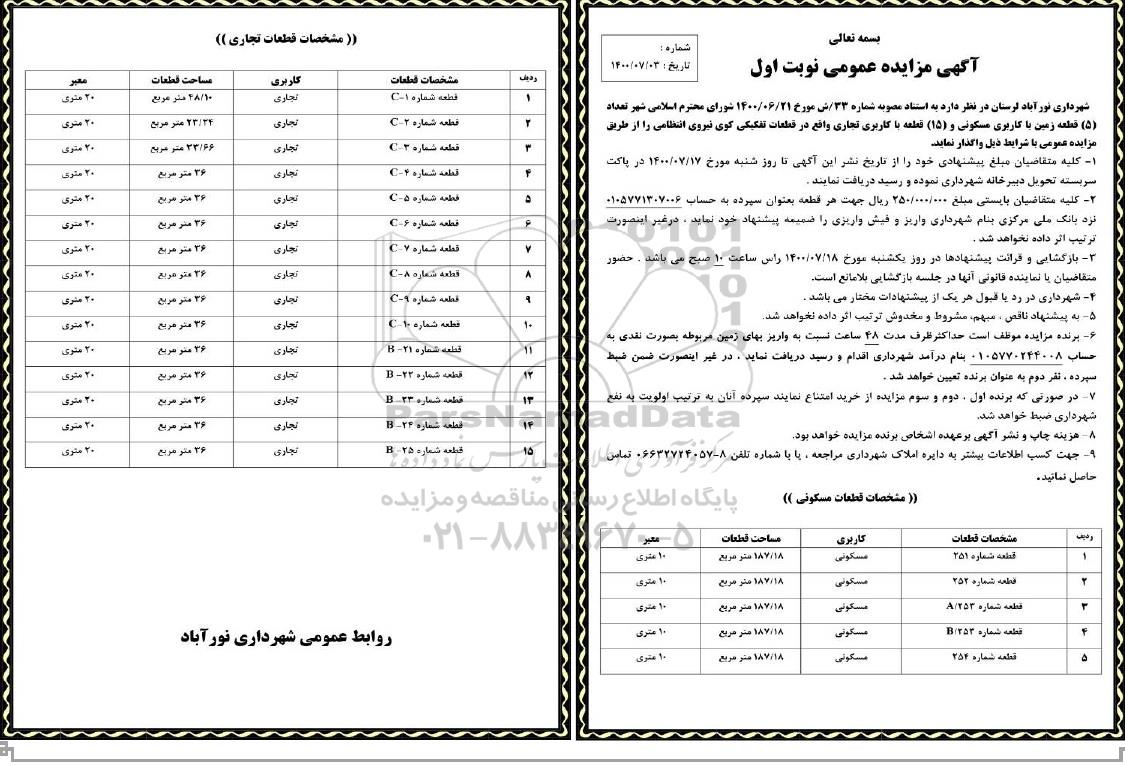 بسمه تعالی
شماره :
تاریخ : ۱۴۰۰/۰۷/۰۳
آگهی مزایده عمومی نوبت اول
شهرداری نورآباد لرستان در نظر دارد به استناد مصوبه شماره ۳۳/ش مورخ ۱۴۰۰/۰۶/۲۱ شورای محترم اسلامی شهر تعداد
(۵) قطعه زمین با کاربری مسکونی و (۱۵) قطعه با کاربری تجاری واقع در قطعات تفکیکی کوی نیروی انتظامی را از طریق
مزایده عمومی با شرایط ذیل واگذار نماید.
۱- کلیه متقاضیان مبلغ پیشنهادی خود را از تاریخ نشر این آگهی تا روز شنبه مورخ ۱۴۰۰/۰۷/۱۷ در پاکت
سربسته تحویل دبیرخانه شهرداری نموده و رسید دریافت نمایند .
۲- کلیه متقاضیان بایستی مبلغ ۲۵۰/۰۰۰/۰۰۰ ریال جهت هر قطعه بعنوان سپرده به حساب ۰۱۰۵۷۷۱۳۰۷۰۰۶
نزد بانک ملی مرکزی بنام شهرداری واریز و فیش واریزی را ضمیمه پیشنهاد خود نماید ، درغیر اینصورت
ترتیب اثر داده نخواهد شد .
۳- بازگشایی و قرائت پیشنهادها در روز یکشنبه مورخ ۱۴۰۰/۰۷/۱۸ راس ساعت ۱۰ صبح می باشد . حضور
متقاضیان یا نماینده قانونی آنها در جلسه بازگشایی بلامانع است.
۴- شهرداری در رد یا قبول هر یک از پیشنهادات مختار می باشد .
۵- به پیشنهاد ناقص ، مبهم، مشروط و مخدوش ترتیب اثر داده نخواهد شد.
۶- برنده مزایده موظف است حداکثرظرف مدت ۴۸ ساعت نسبت به واریز بهای زمین مربوطه بصورت نقدی به
حساب ۰۱۰۵۷۷۰۲۴۴۰۰۸ بنام درآمد شهرداری اقدام و رسید دریافت نماید ، در غیر اینصورت ضمن ضبط
سپرده ، نفر دوم به عنوان برنده تعیین خواهد شد .
۷- در صورتی که برنده اول ، دوم و سوم مزایده از خرید امتناع نمایند سپرده آنان به ترتیب اولویت به نفع
شهرداری ضبط خواهد شد.
۸- هزینه چاپ و نشر آگهی برعهده اشخاص برنده مزایده خواهد بود.
۹- جهت کسب اطلاعات بیشتر به دایره املاک شهرداری مراجعه ، یا با شماره تلفن ۸-۰۶۶۳۲۷۲۴۰۵۷ تماس
حاصل نمائید.
(( مشخصات قطعات مسکونی ))
ردیف مشخصات قطعات کاربری مساحت قطعات معبر
۱ قطعه شماره ۲۵۱ مسکونی ۱۸۷/۱۸ متر مربع ۱۰ متری
۲ قطعه شماره ۲۵۲ مسکونی ۱۸۷/۱۸ متر مربع ۱۰ متری
۳ قطعه شماره A/۲۵۳ مسکونی ۱۸۷/۱۸ متر مربع ۱۰ متری
۴ قطعه شماره B/۲۵۳ مسکونی ۱۸۷/۱۸ متر مربع ۱۰ متری
۵ قطعه شماره ۲۵۴ مسکونی ۱۸۷/۱۸ متر مربع ۱۰ متری
(( مشخصات قطعات تجاری ))
ردیف مشخصات قطعات کاربری مساحت قطعات معبر
۱ قطعه شماره C-۱ تجاری ۴۸/۱۰ متر مربع ۲۰ متری
۲ قطعه شماره C-۲ تجاری ۲۳/۳۴ متر مربع ۲۰ متری
۳ قطعه شماره C-۳ تجاری ۳۳/۶۶ متر مربع ۲۰ متری
۴ قطعه شماره C-۴ تجاری ۳۶ متر مربع ۲۰ متری
۵ قطعه شماره C-۵ تجاری ۳۶ متر مربع ۲۰ متری
۶ قطعه شماره C-۶ تجاری ۳۶ متر مربع ۲۰ متری
۷ قطعه شماره C-۷ تجاری ۳۶ متر مربع ۲۰ متری
۸ قطعه شماره C-۸ تجاری ۳۶ متر مربع ۲۰ متری
۹ قطعه شماره C-۹ تجاری ۳۶ متر مربع ۲۰ متری
۱۰ قطعه شماره C-۱۰ تجاری ۳۶ متر مربع ۲۰ متری
۱۱ قطعه شماره B -۲۱ تجاری ۳۶ متر مربع ۲۰ متری
۱۲ قطعه شماره B -۲۲ تجاری ۳۶ متر مربع ۲۰ متری
۱۳ قطعه شماره B -۲۳ تجاری ۳۶ متر مربع ۲۰ متری
۱۴ قطعه شماره B -۲۴ تجاری ۳۶ متر مربع ۲۰ متری
۱۵ قطعه شماره B -۲۵ تجاری ۳۶ متر مربع ۲۰ متری
روابط عمومی شهرداری نورآباد
ParsNamadData
پایگاه اطلاع رسانی مناقصه و مزایده